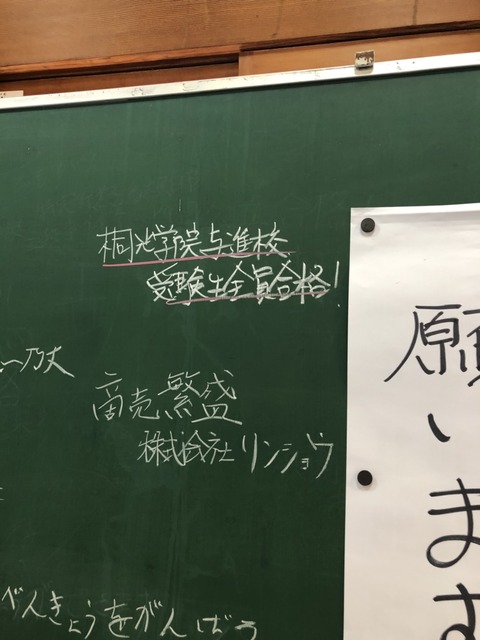 桐光学院与進校
受験生全員合格!
商売繁盛
株式会社リンショウ
べんきょうをがんばう
願います